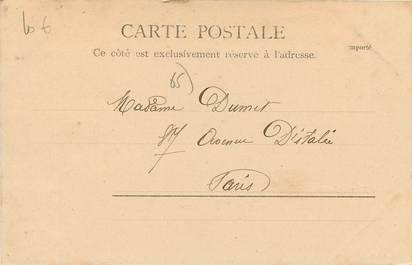 10 €
CARTE POSTALE
Ce côté est exclusivement réservé à l'adresse.
importé
65)
Madame Dumet
87 Avenue D'italie
Paris